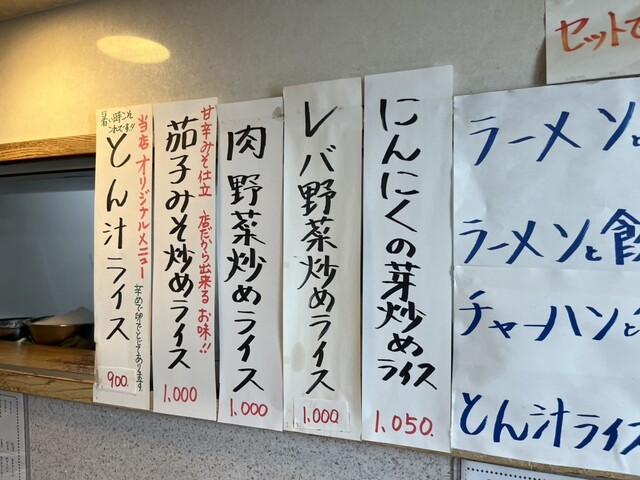 セットで
ラーメンと
ラーメンと飲
チャーハンと
とん汁ライス
にんにくの芽炒めライス
1,050.
レバ野菜炒めライス
1,000.
肉野菜炒めライス
1,000
甘辛みそ仕立 店だから出来るお味!!
茄子みそ炒めライス
1,000
暑い時こそ
これです!!
当店オリジナルメニュー
とん汁ライス
900.